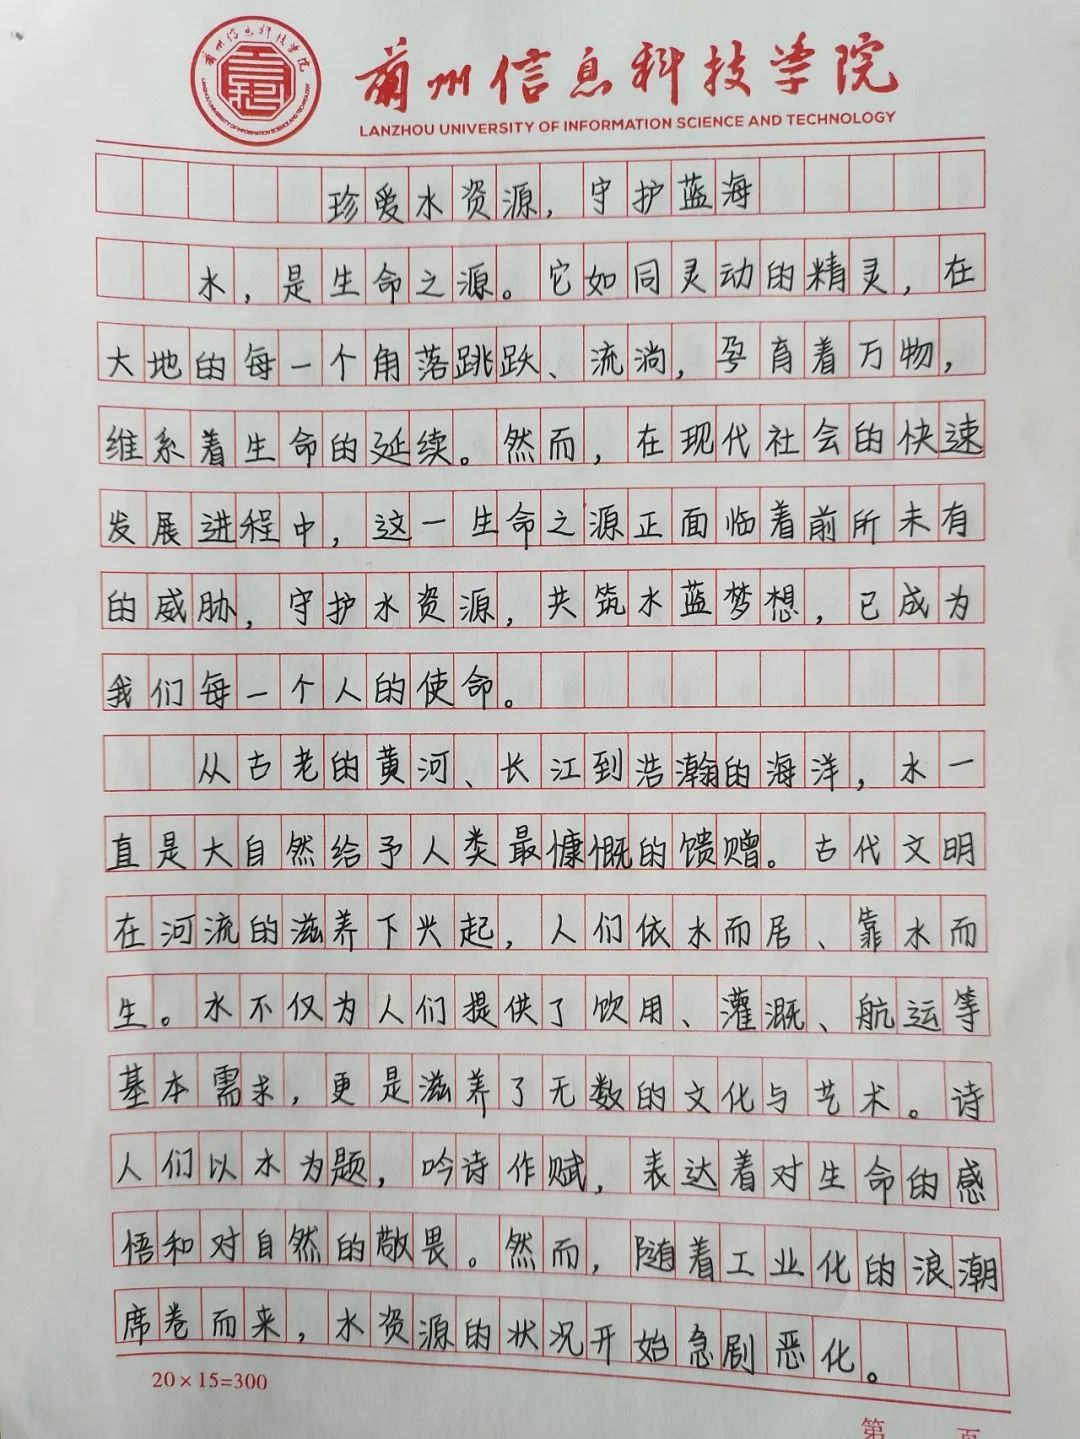 兰州信息科技学院
LANZHOU UNIVERSITY OF INFORMATION SCIENCE AND TECHNOLOGY
珍爱水资源，守护蓝海
水，是生命之源。它如同灵动的精灵，在
大地的每一个角落跳跃、流淌，孕育着万物，
维系着生命的延续。然而，在现代社会的快速
发展进程中，这一生命之源正面临着前所未有
的威胁，守护水资源，共筑水蓝梦想，已成为
我们每一个人的使命。
从古老的黄河、长江到浩瀚的海洋，水一
直是大自然给予人类最慷慨的馈赠。古代文明
在河流的滋养下兴起，人们依水而居、靠水而
生。水不仅为人们提供了饮用、灌溉、航运等
基本需求，更是滋养了无数的文化与艺术。诗
人们以水为题，吟诗作赋，表达着对生命的感
悟和对自然的敬畏。然而，随着工业化的浪潮
席卷而来，水资源的状况开始急剧恶化。
20×15=300
第 页